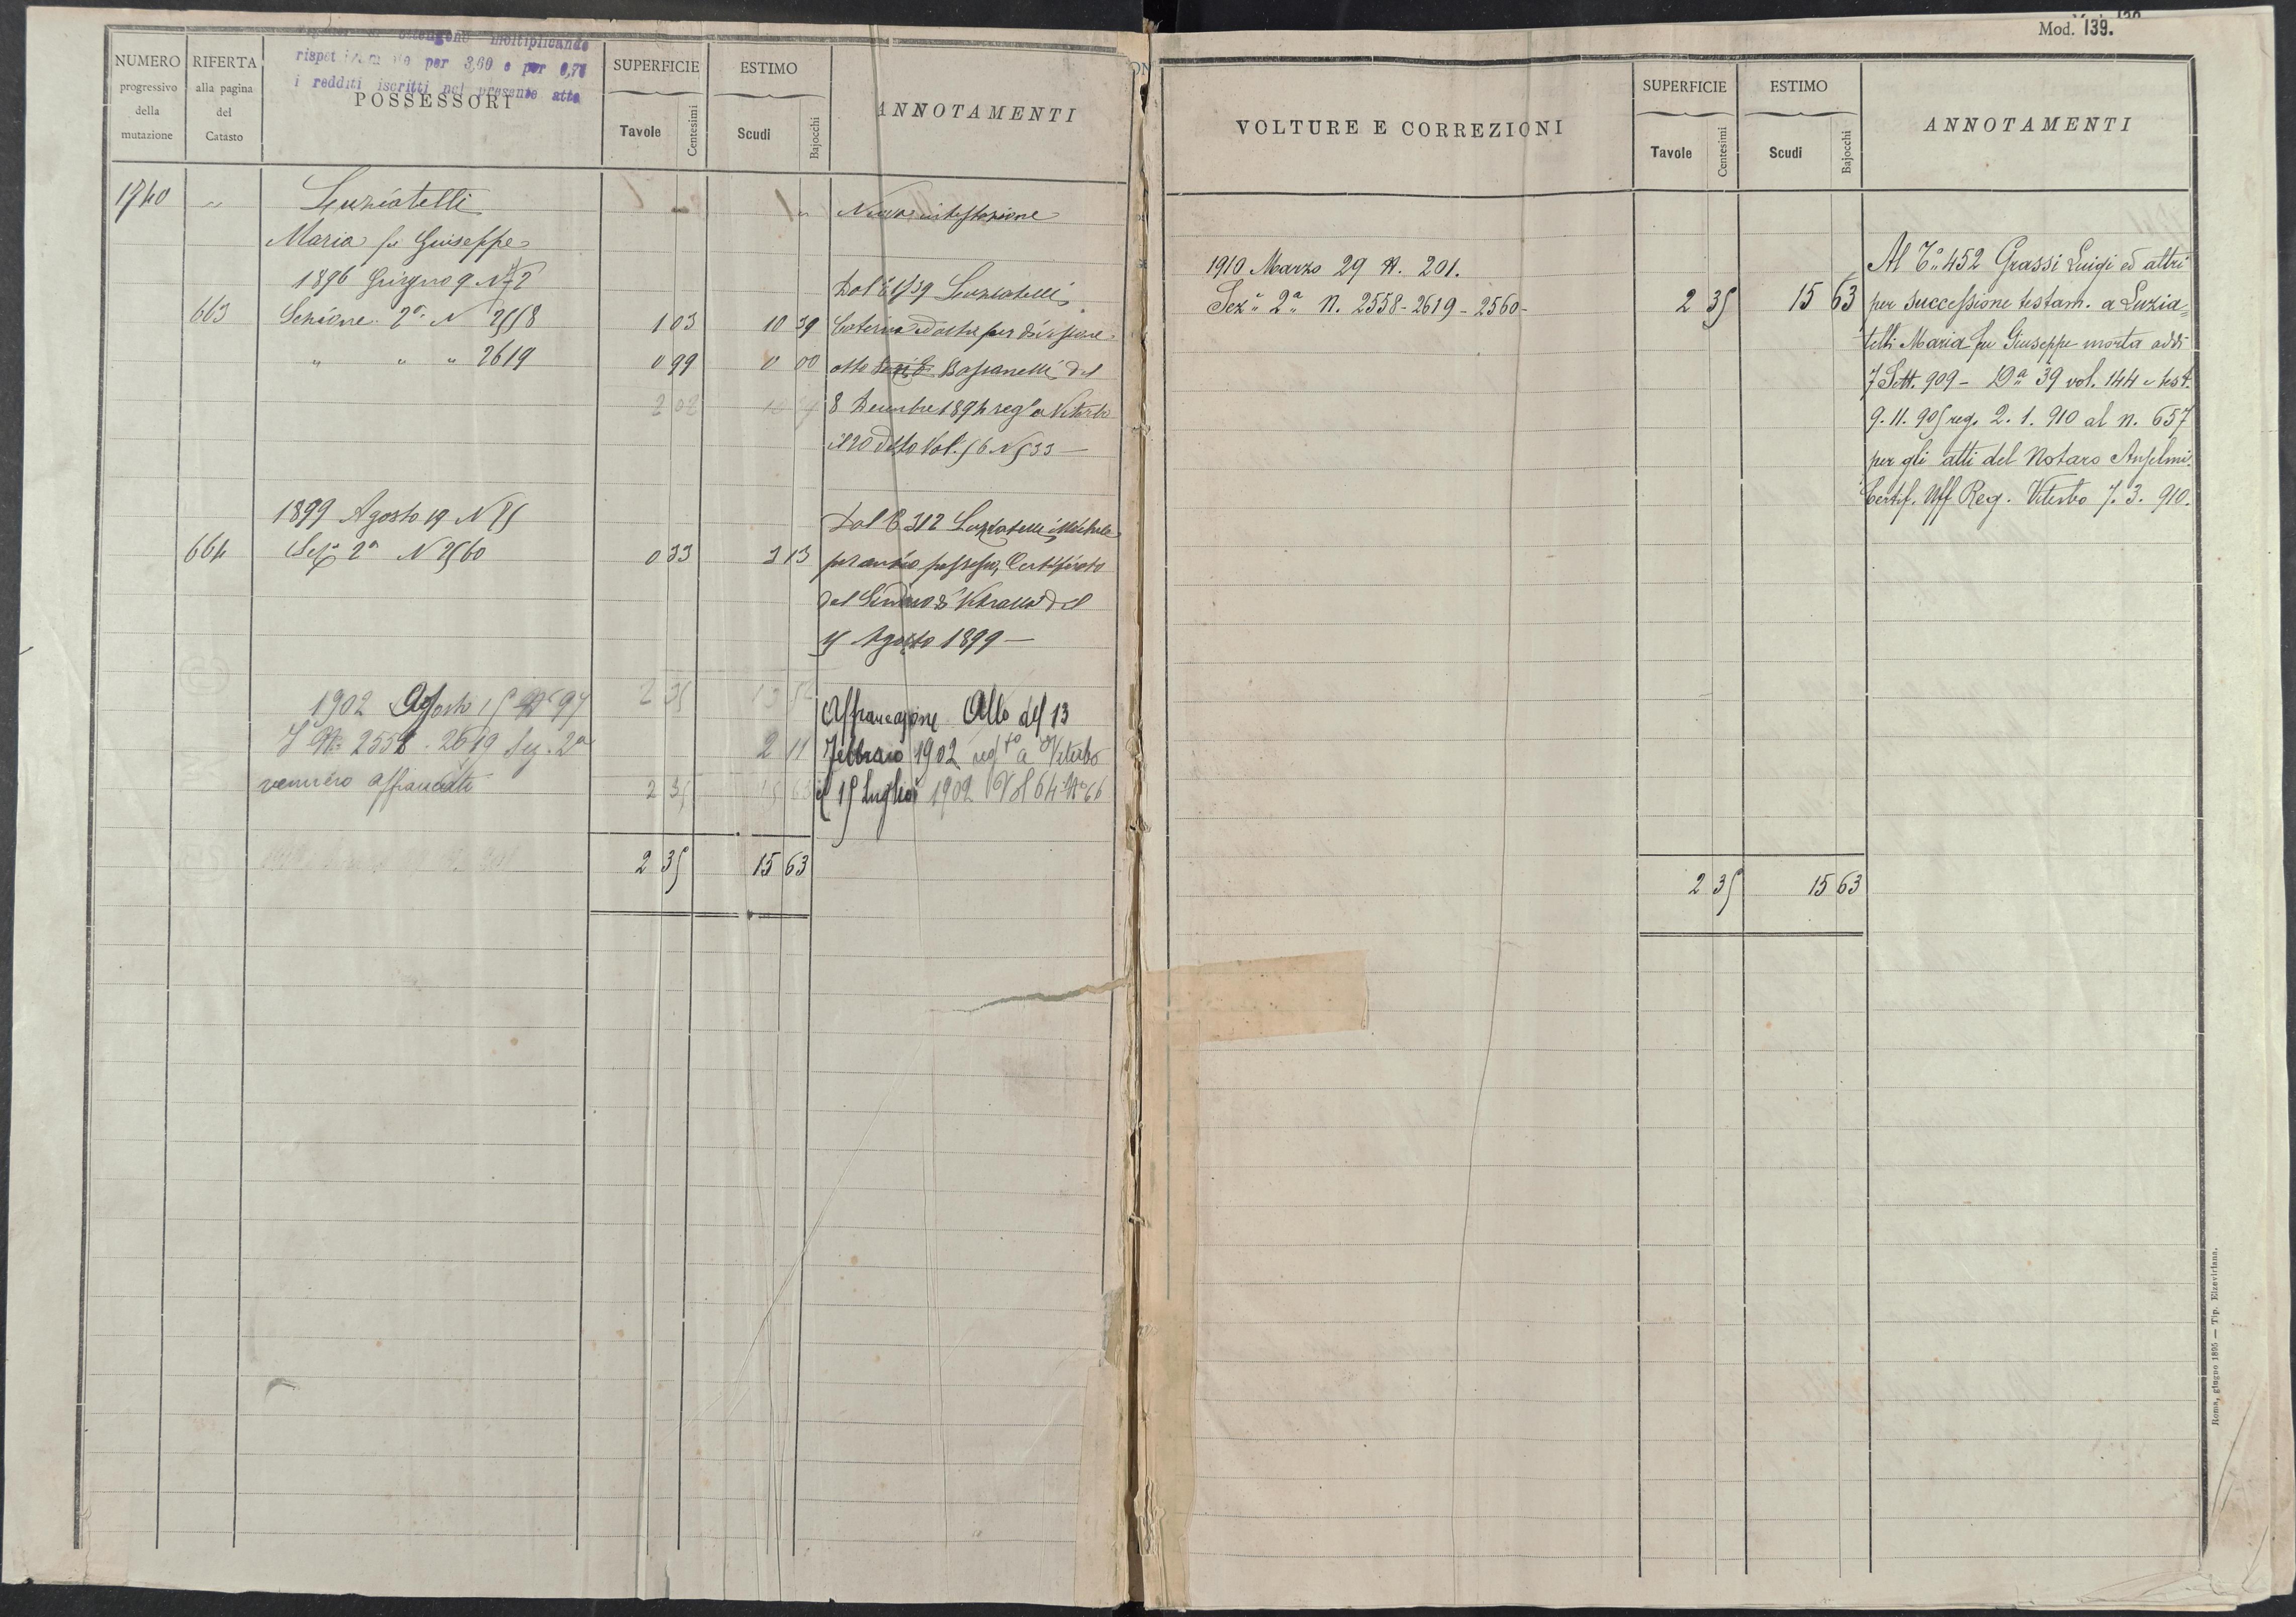 ottengono moltiplicando
per 3,60 e per 0,71
i redditi iscritti nel presente atto
NUMERO progressivo della mutazione
RIFERTA alla pagina del Catasto
POSSESSORI
SUPERFICIE
Tavole Centesimi
ESTIMO
Scudi Bajocchi
ANNOTAMENTI
1740 " Luziatelli " " Nuova intestazione
Maria fu Giuseppe
1896 Giugno 9 N 2
Dal C 1739 Luziatelli
663 Sezione 2ª N 2558 1 03 10 39 Caterina ed altri per divisione
" " " 2619 0 99 0 00 atto Bassanelli del
2 02 10 39 8 Decembre 1894 reg° a Viterbo
il 20 detto Vol. 56 N 533 —
1899 Agosto 19 N 85
Dal C 312 Luziatelli Michele
664 Sez 2ª N 2560 0 33 3 13 per antico possesso, Certificato
del Sindaco di Vetralla del
Agosto 1899 —
2 35 13 52
1902 Agosto 15 N° 97
Affrancazione Atto del 13
I N. 2558. 2619 Sez. 2ª 2 11 Febbraio 1902 regto a Viterbo
vennero affrancati 2 35 15 63 il 15 Luglio 1902 Vol 64 N° 66
2 35 15 63
Mod. 139.
VOLTURE E CORREZIONI
SUPERFICIE
Tavole Centesimi
ESTIMO
Scudi Bajocchi
ANNOTAMENTI
Al C° 452 Grassi Luigi ed altri
1910 Marzo 29 N. 201.
Sez." 2ª N. 2558-2619-2560- 2 35 15 63 per successione testam. a Luzia=
telli Maria fu Giuseppe morta addì
7 Sett. 909 - Dª 39 vol. 144 e test.
9. 11. 905 reg. 2. 1. 910 al n. 657
per gli atti del Notaro Anselmi.
Certif. Uff. Reg. Viterbo 7. 3. 910.
2 35 15 63
Roma, giugno 1895 — Tip. Elzeviriana.